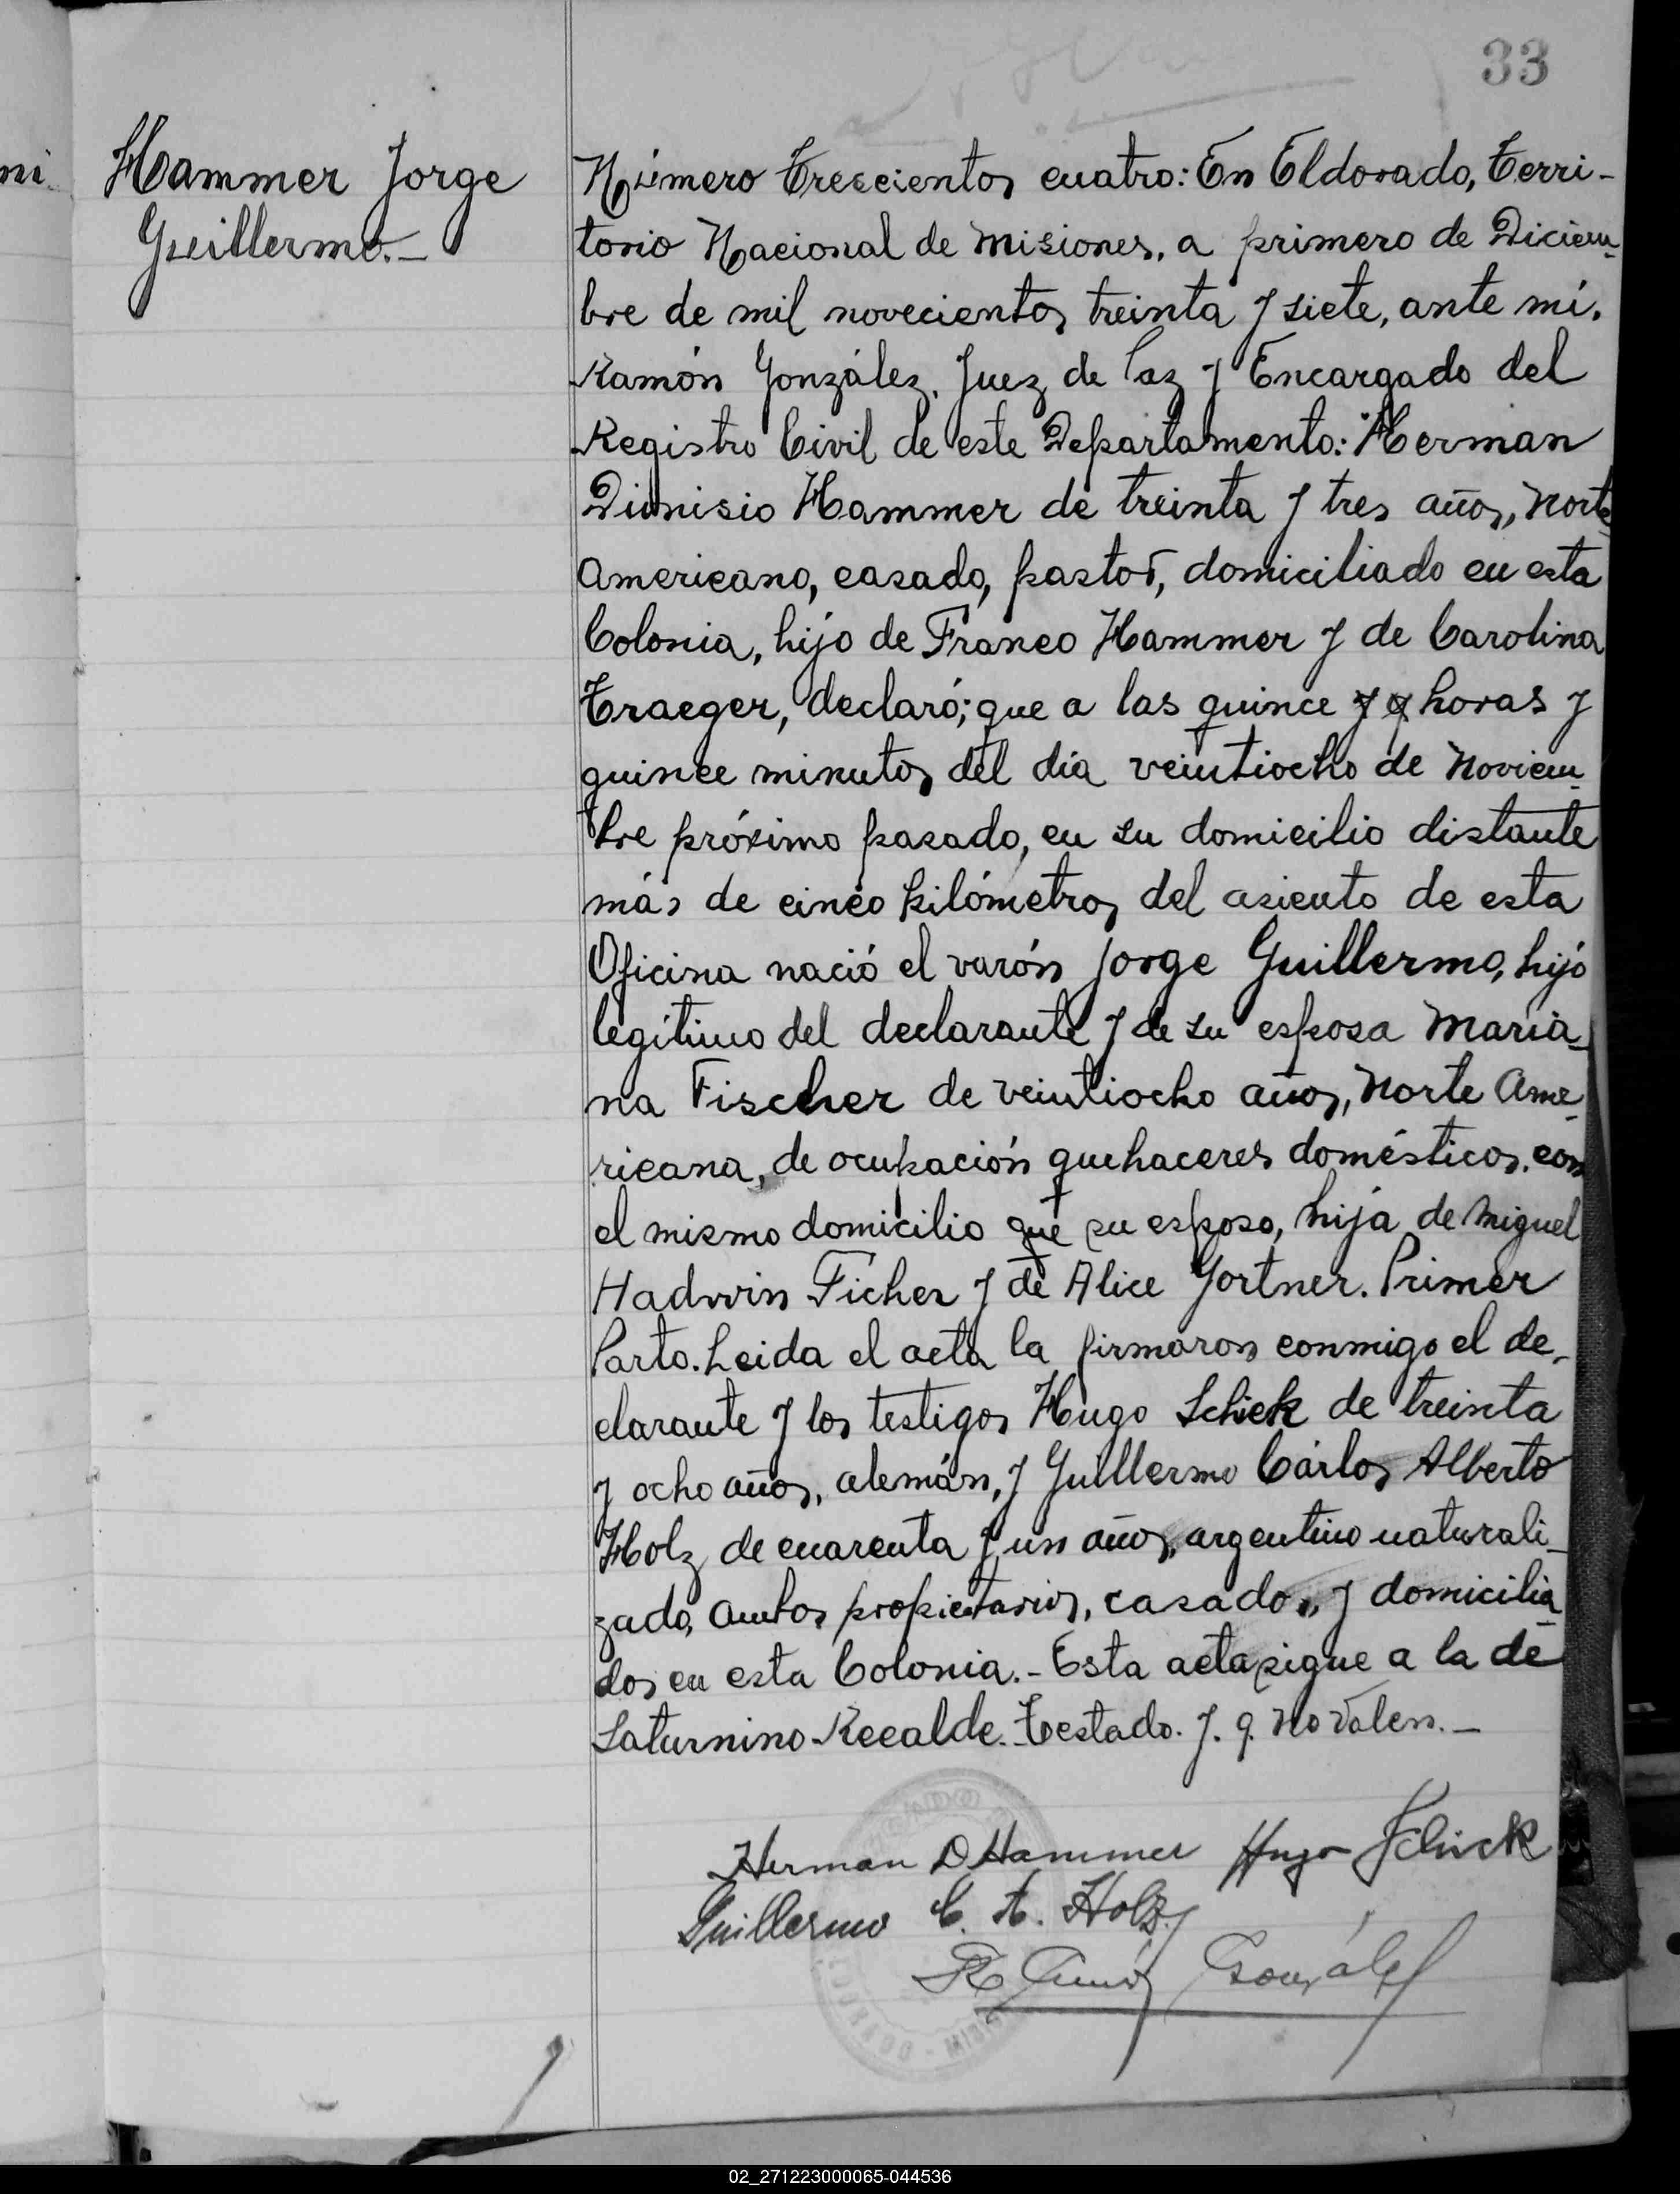 33
ni
Hammer Jorge
Guillermo.-
Número Trescientos cuatro: En Eldorado, Terri-
torio Nacional de Misiones, a primero de Diciem-
bre de mil novecientos treinta y siete, ante mí,
Ramón González, Juez de Paz y Encargado del
Registro Civil de este Departamento: Herman
Dionisio Hammer de treinta y tres años, Norte
Americano, casado, pastor, domiciliado en esta
Colonia, hijo de Franco Hammer y de Carolina
Traeger, declaró; que a las quince y q horas y
quince minutos del día veintiocho de Noviem-
bre próximo pasado, en su domicilio distante
más de cinco kilómetros del asiento de esta
Oficina nació el varón Jorge Guillermo, hijo
legítimo del declarante y de su esposa Maria-
na Fischer de veintiocho años, Norte Ame-
ricana, de ocupación quehaceres domésticos, con
el mismo domicilio que su esposo, hija de Miguel
Hadwin Ficher y de Alice Gortner. Primer
Parto. Leida el acta la firmaron conmigo el de-
clarante y los testigos Hugo Schick de treinta
y ocho años, alemán, y Guillermo Cárlos Alberto
Holz de cuarenta y un años, argentino naturali-
zado, ambos propietarios, casados, y domicilia-
dos en esta Colonia.- Esta acta sigue a la de
Saturnino Recalde. Testado. y. q. No Valen.-
Herman D Hammer Hugo Schick
Guillermo C. A. Holz
Ramón González
02_271223000065-044536